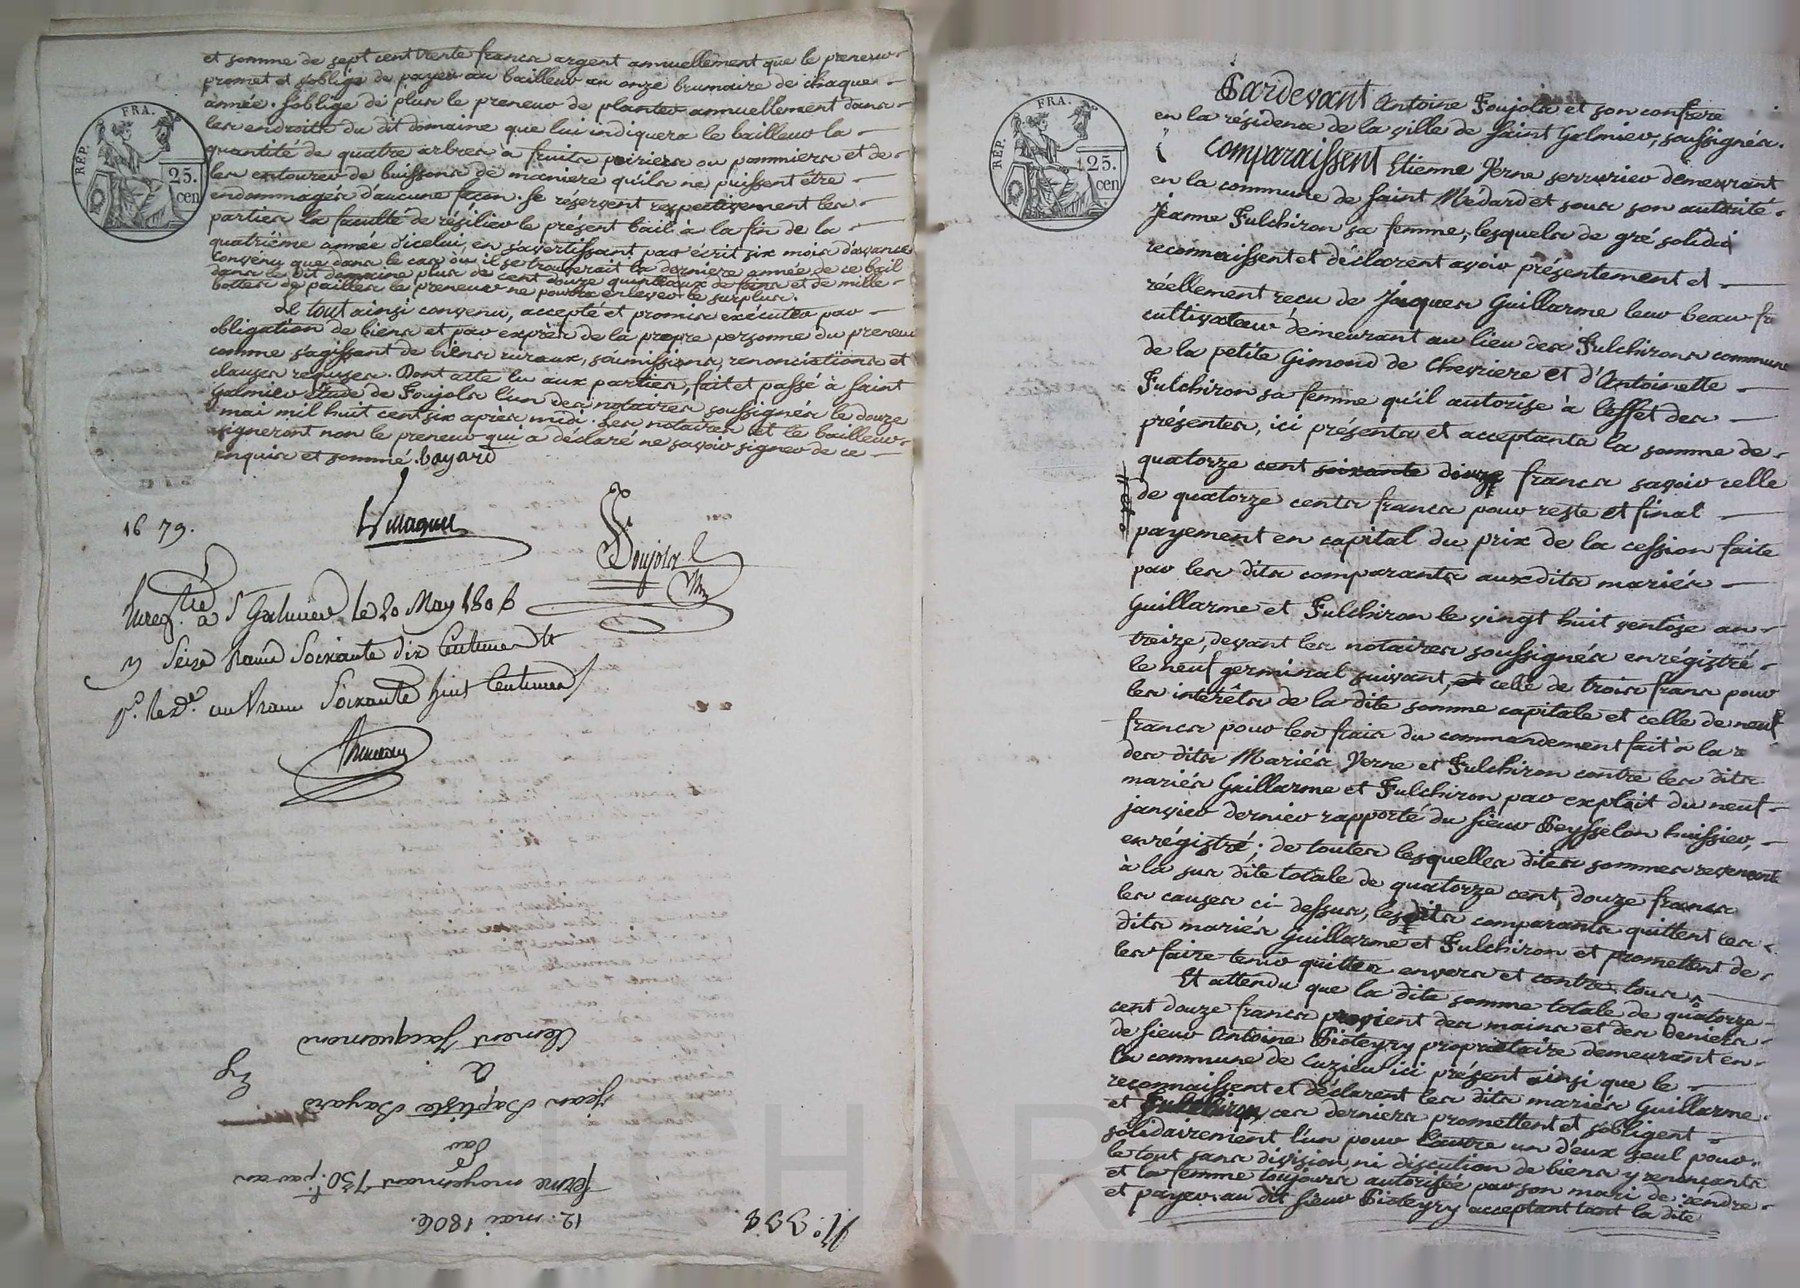 et somme de sept cent trente francs argent annuellement que le preneur
promet et s'oblige de payer au bailleur au onze brumaire de chaque
année. s'oblige de plus le preneur de planter annuellement dans
les endroits du dit domaine que lui indiquera le bailleur la
quantité de quatre arbres à fruits poiriers ou pommiers et de
les entourer de buissons de maniere qu'ils ne puissent être
endommagés d'aucune façon. se reservent respectivement les
parties la faculté de résilier le présent bail à la fin de la
quatrième année d'icelui, en s'avertissant par écrit six mois d'avance
convenu que dans le cas où il se trouverait la derniere année de ce bail
dans le dit domaine plus de cent douze quintaux de foins et de mille
bottes de pailles le preneur ne pourra enlever le surplus.
Le tout ainsi convenu, accepté et promis exécuter par
obligation de biens et par exprès de la propre personne du preneur
comme s'agissant de biens ruraux, soumissions, renonciations et
clauses requises. Dont acte lu aux parties, fait et passé à Saint
Galmier étude de Foujols l'un des notaires soussignés le douze
mai mil huit cent six après midi. Les notaires et le bailleur
signeront non le preneur qui a déclaré ne savoir signer de ce
enquis et sommé. bayard
RÉP. FRA.
25.
cen
1679.
Foujols
Enregtré à St Galmier le 20 May 1806
Seize francs Soixante dix Centimes
un franc Soixante huit Centimes
N.° 334
12. mai 1806.
ferme moyennant 730.f par an
Par
jean Baptiste Bayard
à
Clement Jacquemond
RÉP. FRA.
25.
cen
Pardevant Antoine Foujols et son confrere
en la résidence de la ville de Saint Galmier, soussignés.
Comparaissent Etienne Verne serrurier demeurant
en la commune de Saint Médard et sous son autorité
Jeanne Fulchiron sa femme, lesquels de gré solidai
reconnaissent et déclarent avoir présentement et
réellement reçu de Jacques Guillarme leur beau frè
cultivateur demeurant au lieu des Fulchirons commune
de la petite Gimond de Chevriere et d'Antoinette
Fulchiron sa femme qu'il autorise à l'effet des
présentes, ici présents et acceptants la somme de
quatorze cent soixante douze francs savoir celle
de quatorze cents francs pour reste et final
payement en capital du prix de la cession faite
par les dits comparants auxdits mariés
Guillarme et Fulchiron le vingt huit ventose an
treize, devant les notaires soussignés enrégistré
le neuf germinal suivant, et celle de trois francs pour
les intérêts de la dite somme capitale et celle de neuf
francs pour les frais du commandement fait à la r
des dits Mariés Verne et Fulchiron contre les dits
mariés Guillarme et Fulchiron par exploit du neuf
janvier dernier rapporté du sieur Peysselon huissier,
enrégistré; de toutes lesquelles dites sommes revenants
à la sus dite totale de quatorze cent douze francs
les causes ci-dessus, les dits comparants quittent les
dits mariés Guillarme et Fulchiron et promettent de
les faire tenir quittes envers et contre tous.
Et attendu que la dite somme totale de quatorze
cent douze francs provient des mains et des deniers
de sieur Antoine Pisteyry propriétaire demeurant en
la commune de Cuzieu ici présent ainsi que le
reconnaissent et déclarent les dits mariés Guillarme
et Fulchiron, ces derniers promettent et s'obligent
solidairement l'un pour l'autre un d'eux seul pour
le tout sans division ni discution de biens y renonçants
et la femme toujours autorisée par son mari de rendre
et payer au dit sieur Pisteyry acceptant tant la dite